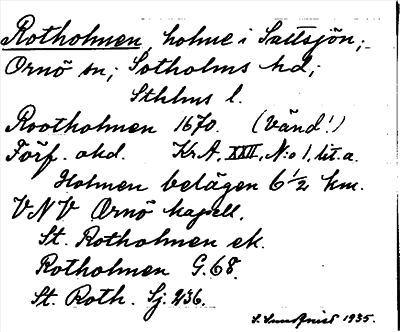 Rotholmen, holme i Saltsjön;
Ornö sn; Sotholms hd;
Sthlms l.
Rootholmen 1670. (Vänd!)
Förf. okd. Kr.A. XXII, N:o 1, lit. a.
Holmen belägen 6 1/2 km.
VNV Ornö kapell.
St. Rotholmen ek.
Rotholmen G.68.
St. Roth. Sj. 236.
1935.